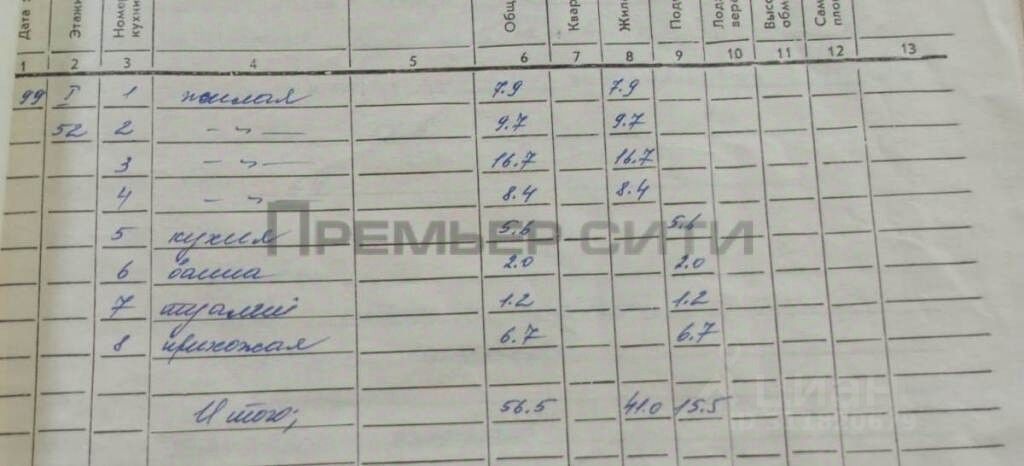 Дата
Этаж
Номер
кухни
Общ
Квар
Жил
Под
Лод
вера
Выс
обм
Сам
пло
1 2 3 4 5 6 7 8 9 10 11 12 13
99 I 1 жилая 7.9 7.9
52 2 -"- 9.7 9.7
3 -"- 16.7 16.7
4 -"- 8.4 8.4
5 кухня 5.6 5.6
ПРЕМЬЕР СИТИ
6 ванна 2.0 2.0
7 туалет 1.2 1.2
8 прихожая 6.7 6.7
Итого; 56.5 41.0 15.5
Циан